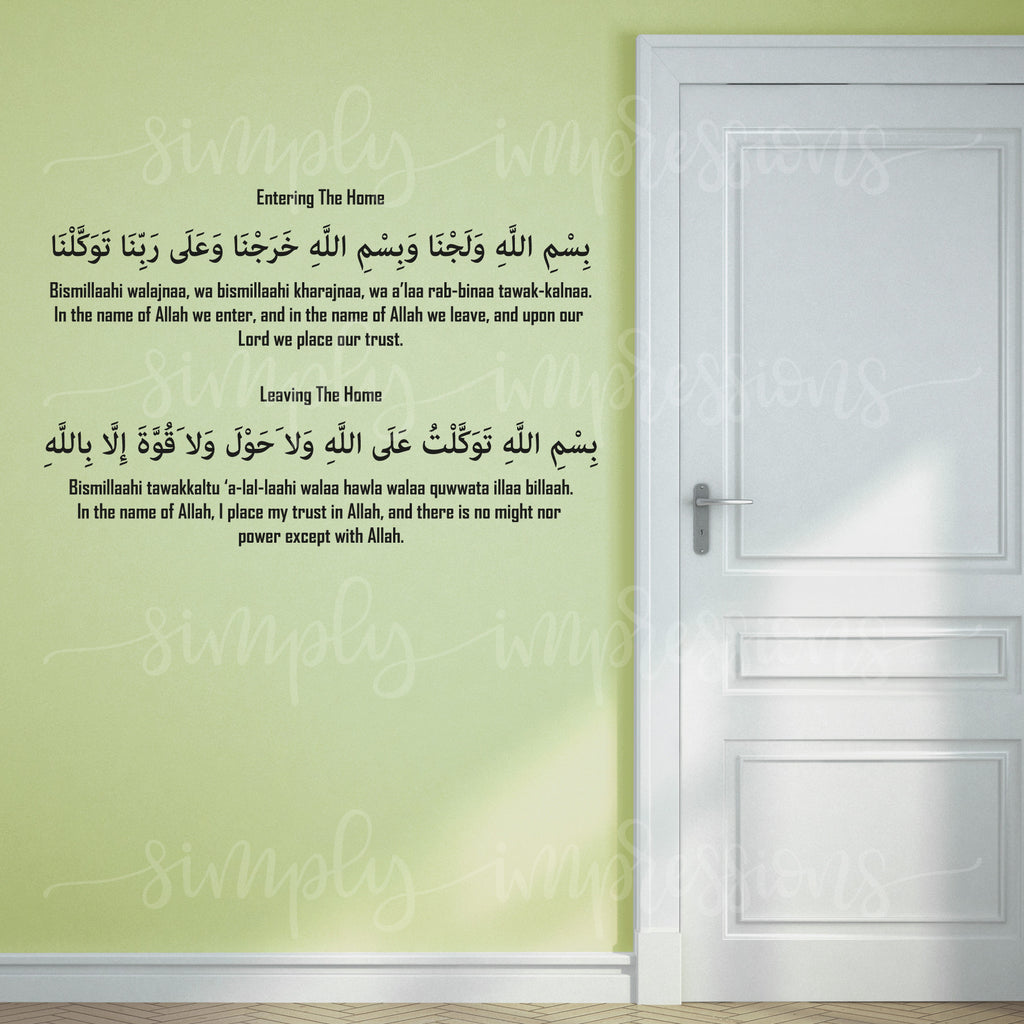 Entering The Home
بِسْمِ اللَّهِ وَلَجْنَا وَبِسْمِ اللَّهِ خَرَجْنَا وَعَلَى رَبِّنَا تَوَكَّلْنَا
Bismillaahi walajnaa, wa bismillaahi kharajnaa, wa a’laa rab-binaa tawak-kalnaa.
In the name of Allah we enter, and in the name of Allah we leave, and upon our
Lord we place our trust.
Leaving The Home
بِسْمِ اللَّهِ تَوَكَّلْتُ عَلَى اللَّهِ وَلاَ حَوْلَ وَلاَ قُوَّةَ إِلَّا بِاللَّهِ
Bismillaahi tawakkaltu ‘a-lal-laahi walaa hawla walaa quwwata illaa billaah.
In the name of Allah, I place my trust in Allah, and there is no might nor
power except with Allah.
simply impressions
simply impressions
simply impressions
simply impressions